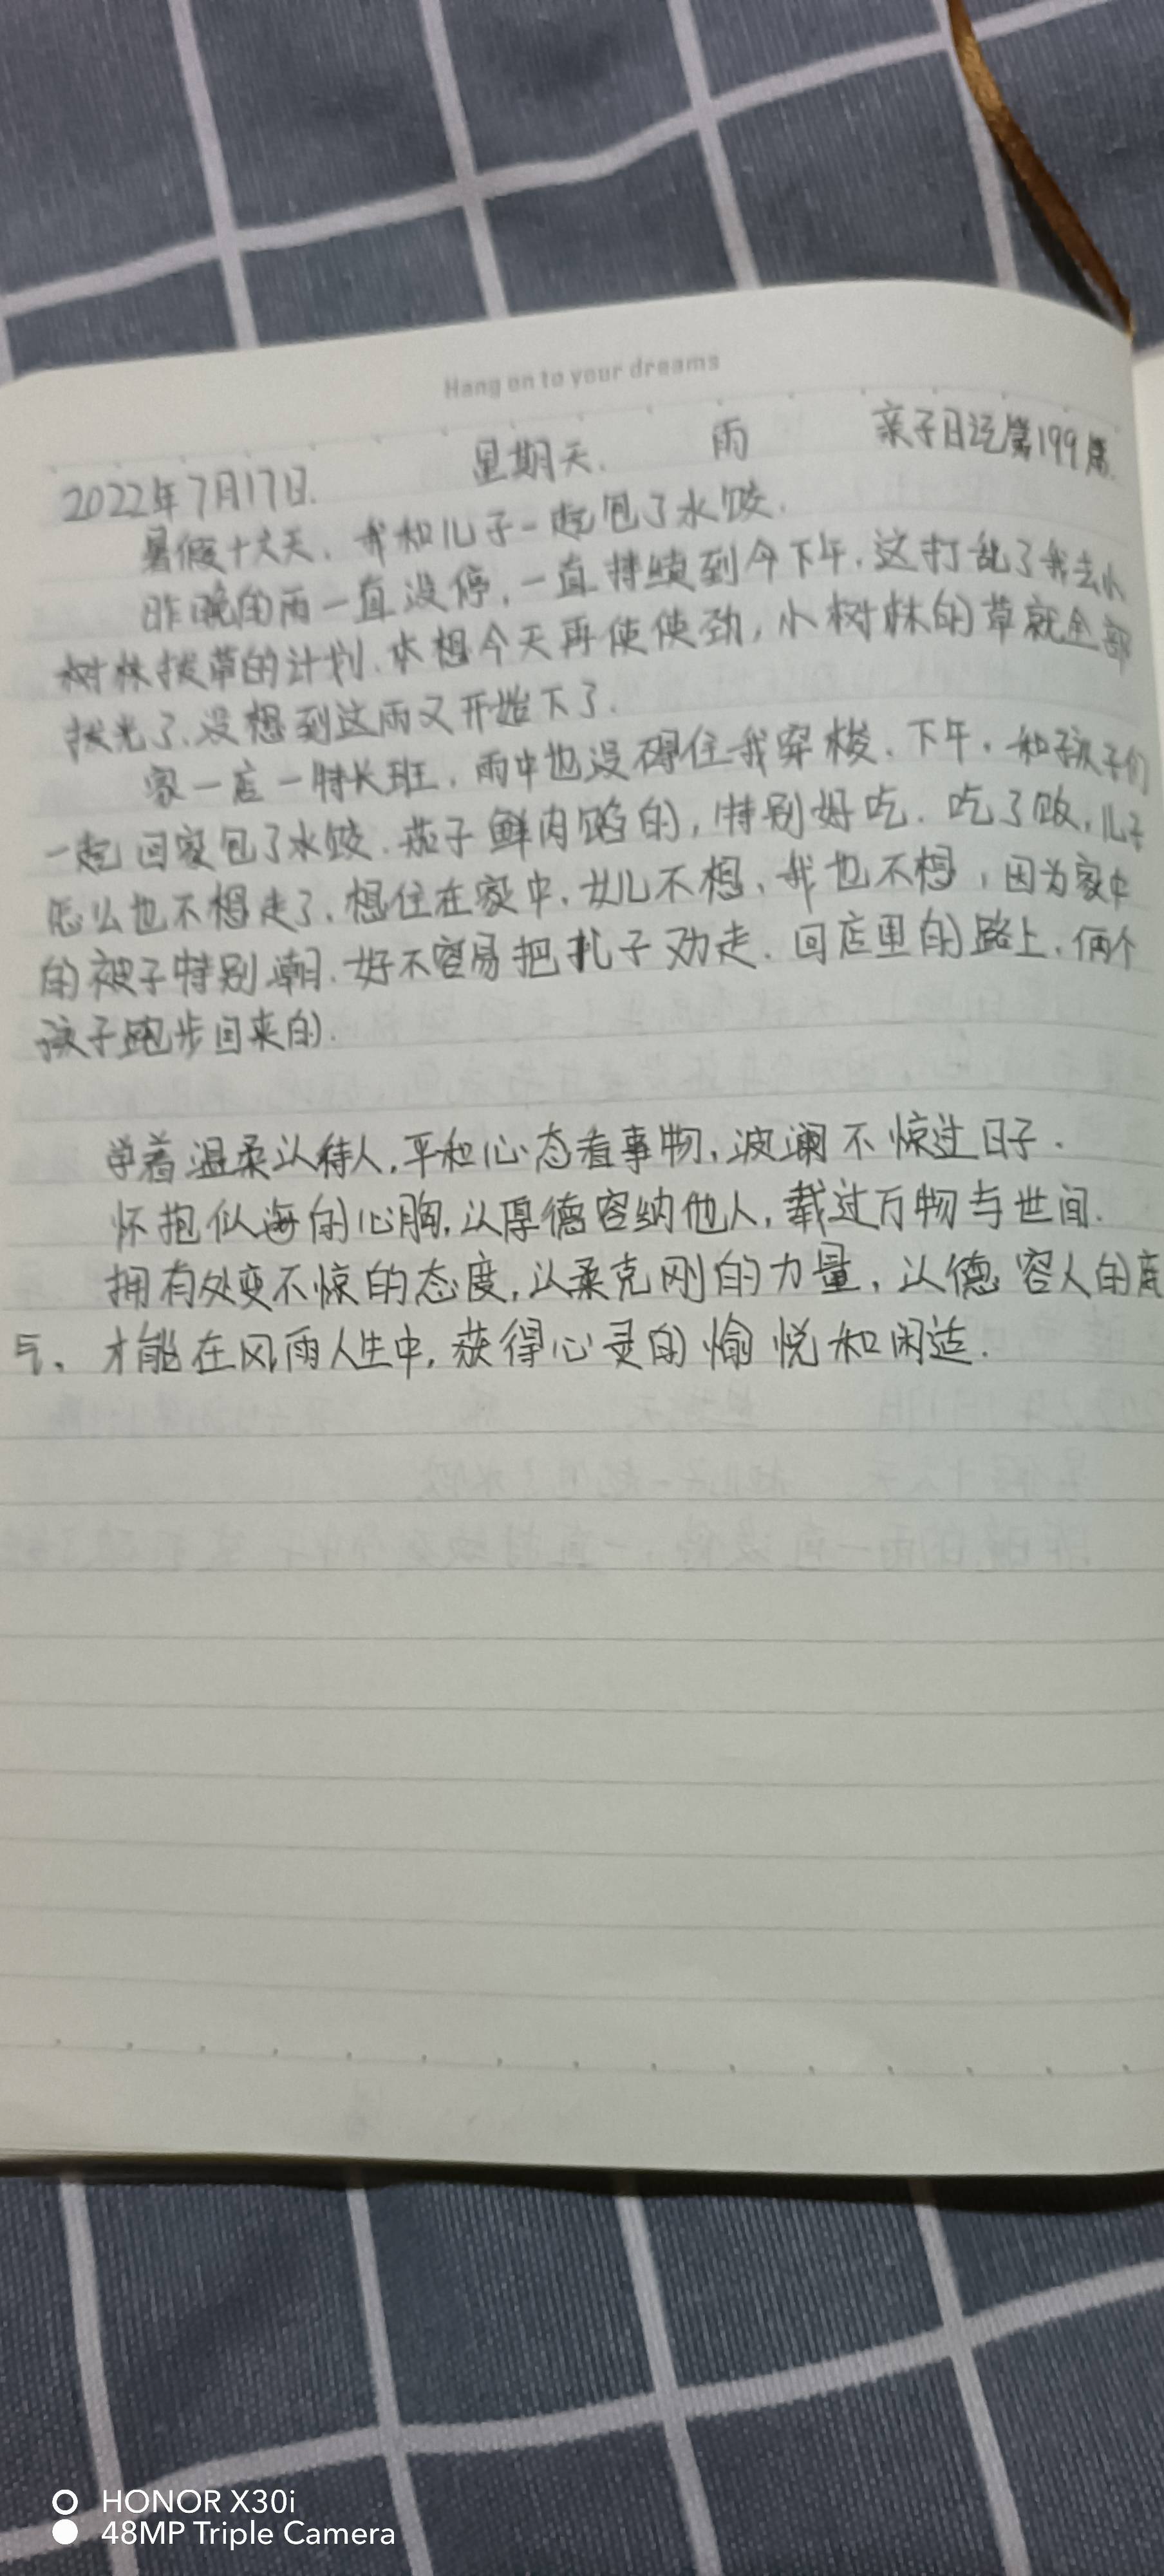 Hang on to your dreams
2022年7月17日. 星期天. 雨 亲子日记第199篇.
暑假十六天. 我和儿子一起包了水饺.
昨晚的雨一直没停,一直持续到今下午.这打乱了我去小
树林拔草的计划.本想今天再使使劲,小树林的草就全部
拔光了.没想到这雨又开始下了.
家一店一特长班.雨中也没碍住我穿梭.下午,和孩子们
一起回家包了水饺.茄子鲜肉馅的,特别好吃.吃了饭,儿子
怎么也不想走了.想住在家中.女儿不想、我也不想,因为家中
的被子特别潮.好不容易把扎子劝走.回店里的路上,俩个
孩子跑步回来的.
学着温柔以待人,平和心态看事物,波澜不惊过日子.
怀抱似海的心胸,以厚德容纳他人,载过万物与世间.
拥有处变不惊的态度,以柔克刚的力量,以德容人的度
才能在风雨人生中,获得心灵的愉悦和闲适.
HONOR X30i
48MP Triple Camera